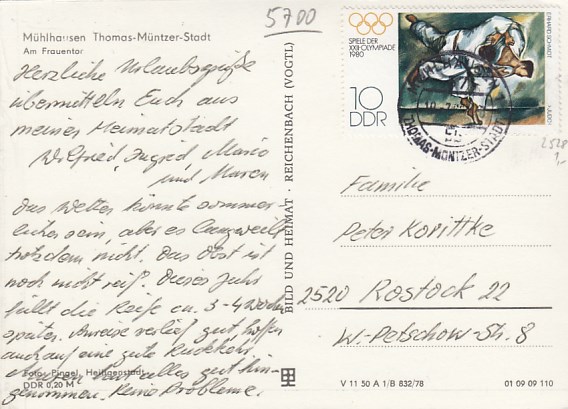 5700
Mühlhausen Thomas-Müntzer-Stadt
Am Frauentor
Herzliche Urlaubsgrüße
übermitteln Euch aus
meiner Heimatstadt
Wilfried, Ingrid Mario
und Maren
Das Wetter könnte sommer-
licher sein, aber es langweilt
trotzdem nicht. Das Obst ist
noch nicht reif. Dieses Jahr
fällt die Reife ca. 3-4 Wochen
später. Anreise verlief gut, hoffen
auch auf eine gute Rückkehr.
haben alles gut hin-
genommen. Keine Probleme.
Foto: Pingel, Heiligenstadt
DDR 0,20 M
BILD UND HEIMAT · REICHENBACH (VOGTL)
SPIELE DER
XXII. OLYMPIADE
1980
10
DDR
THOMAS-MÜNTZER-STADT
2528
1,-
Familie
Peter Korittke
2520 Rostock 22
W.-Petschow-Str. 8
V 11 50 A 1/B 832/78
01 09 09 110